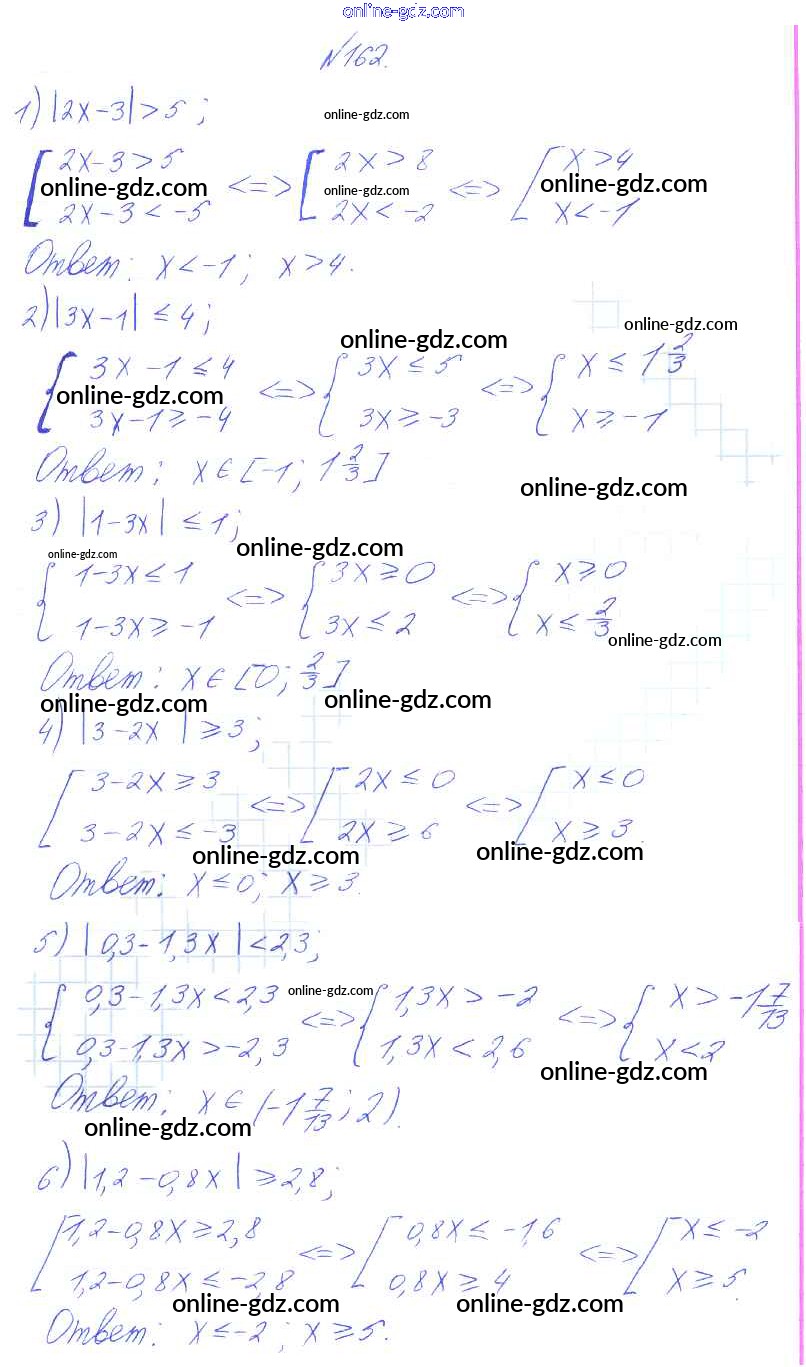 online-gdz.com
№162.
1) |2x-3|>5; online-gdz.com
[2x-3>5 <=> [2x>8 <=> [x>4
online-gdz.com online-gdz.com online-gdz.com
2x-3<-5 2x<-2 x<-1
Ответ: x<-1; x>4.
2) |3x-1| ≤ 4; online-gdz.com
online-gdz.com
{3x-1≤4 <=> {3x≤5 <=> {x≤1 2/3
online-gdz.com
3x-1≥-4 3x≥-3 x≥-1
Ответ: x∈[-1; 1 2/3]
online-gdz.com
3) |1-3x| ≤1;
online-gdz.com online-gdz.com
{1-3x≤1 <=> {3x≥0 <=> {x≥0
1-3x≥-1 3x≤2 x≤2/3
online-gdz.com
Ответ: x∈[0; 2/3]
online-gdz.com online-gdz.com
4) |3-2x|≥3;
[3-2x≥3 <=> [2x≤0 <=> [x≤0
3-2x≤-3 2x≥6 x≥3.
online-gdz.com online-gdz.com
Ответ: x≤0; x≥3.
5) |0,3-1,3x|<2,3;
{0,3-1,3x<2,3 online-gdz.com <=> {1,3x>-2 <=> {x>-1 7/13
0,3-1,3x>-2,3 1,3x<2,6 x<2
online-gdz.com
Ответ: x∈(-1 7/13; 2).
online-gdz.com
6) |1,2-0,8x|≥2,8;
[1,2-0,8x≥2,8 <=> [0,8x≤-1,6 <=> [x≤-2
1,2-0,8x≤-2,8 0,8x≥4 x≥5.
online-gdz.com online-gdz.com
Ответ: x≤-2; x≥5.